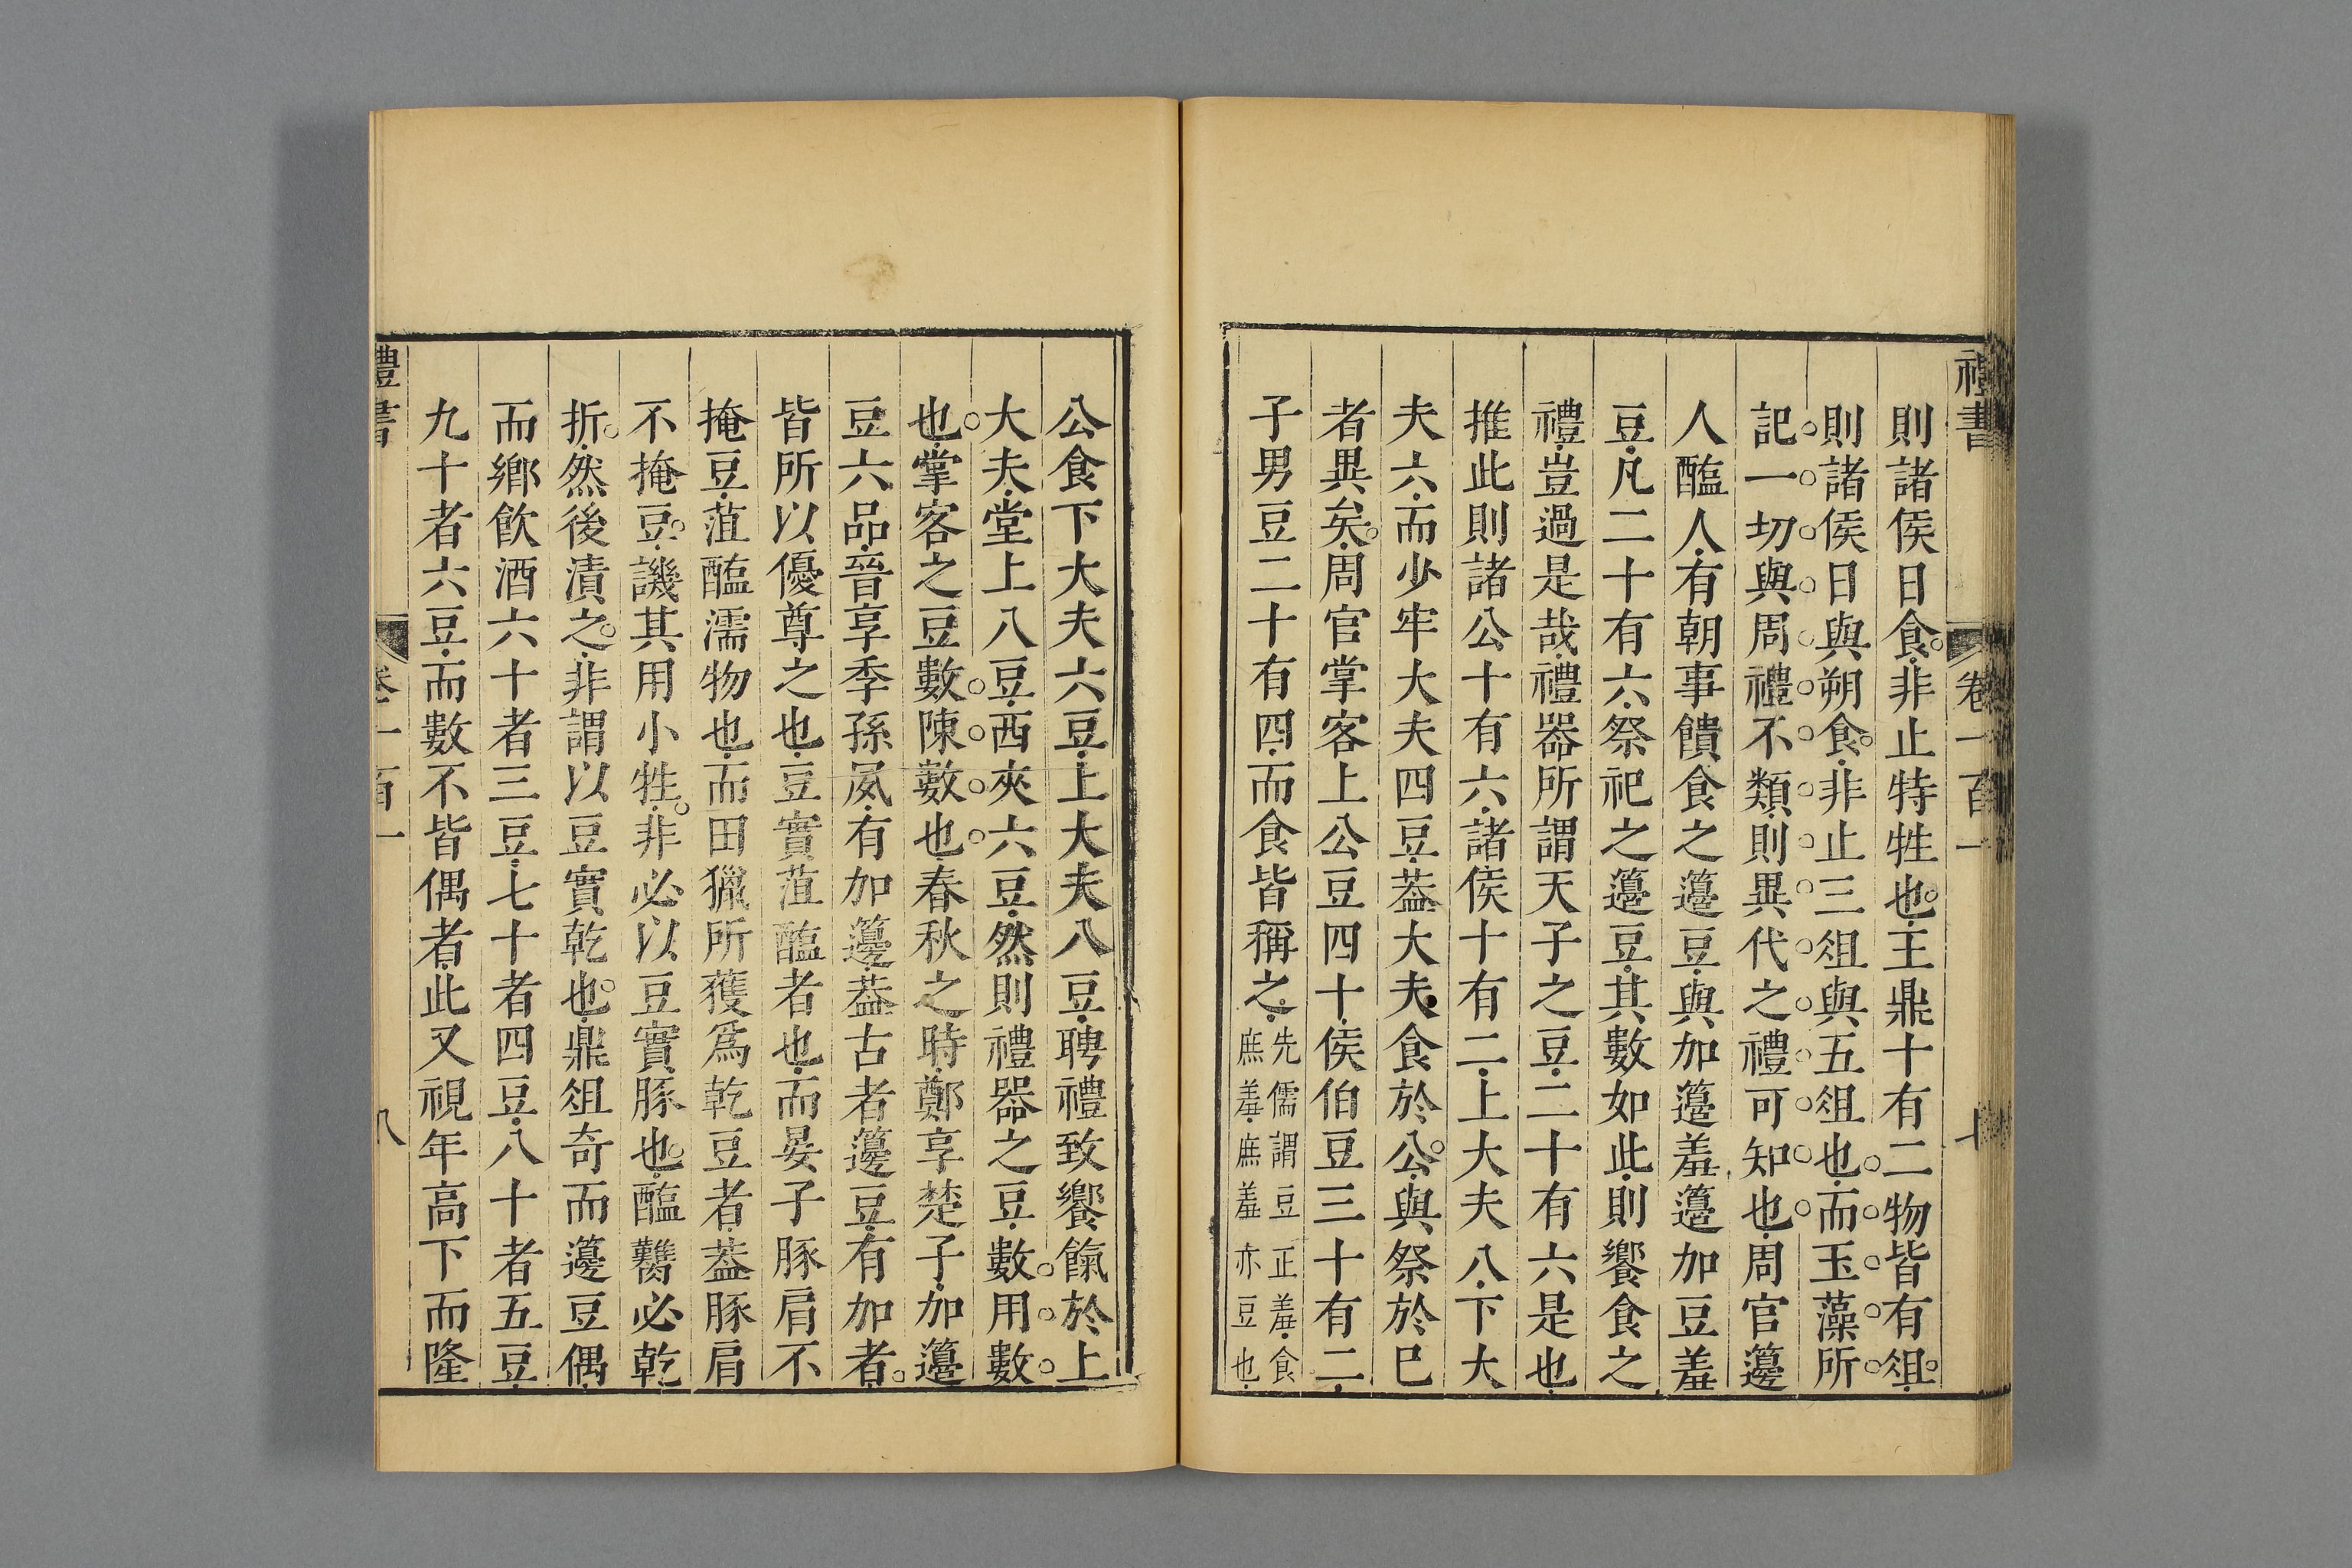 禮書
卷一百一
則諸侯日食非止特牲也王鼎十有二物皆有俎
則諸侯日與朔食非止三俎與五俎也而玉藻所
記一切與周禮不類則異代之禮可知也周官籩
人醢人有朝事饋食之籩豆與加籩羞籩加豆羞
豆凡二十有六祭祀之籩豆其數如此則饗食之
禮豈過是哉禮器所謂天子之豆二十有六是也
推此則諸公十有六諸侯十有二上大夫八下大
夫六而少牢大夫四豆蓋大夫食於公與祭於巳
者異矣周官掌客上公豆四十侯伯豆三十有二
子男豆二十有四而食皆稱之先儒謂豆正羞食
庶羞庶羞亦豆也
公食下大夫六豆上大夫八豆聘禮致饗餼於上
大夫堂上八豆西夾六豆然則禮器之豆數用數
也掌客之豆數陳數也春秋之時鄭享楚子加籩
豆六品晉享季孫夙有加籩蓋古者籩豆有加者
皆所以優尊之也豆實菹醢者也而晏子豚肩不
掩豆菹醢濡物也而田獵所獲爲乾豆者蓋豚肩
不掩豆譏其用小牲非必以豆實豚也醢臡必乾
折然後漬之非謂以豆實乾也鼎俎奇而籩豆偶
而鄉飲酒六十者三豆七十者四豆八十者五豆
九十者六豆而數不皆偶者此又視年高下而隆
禮書
卷一百一
八